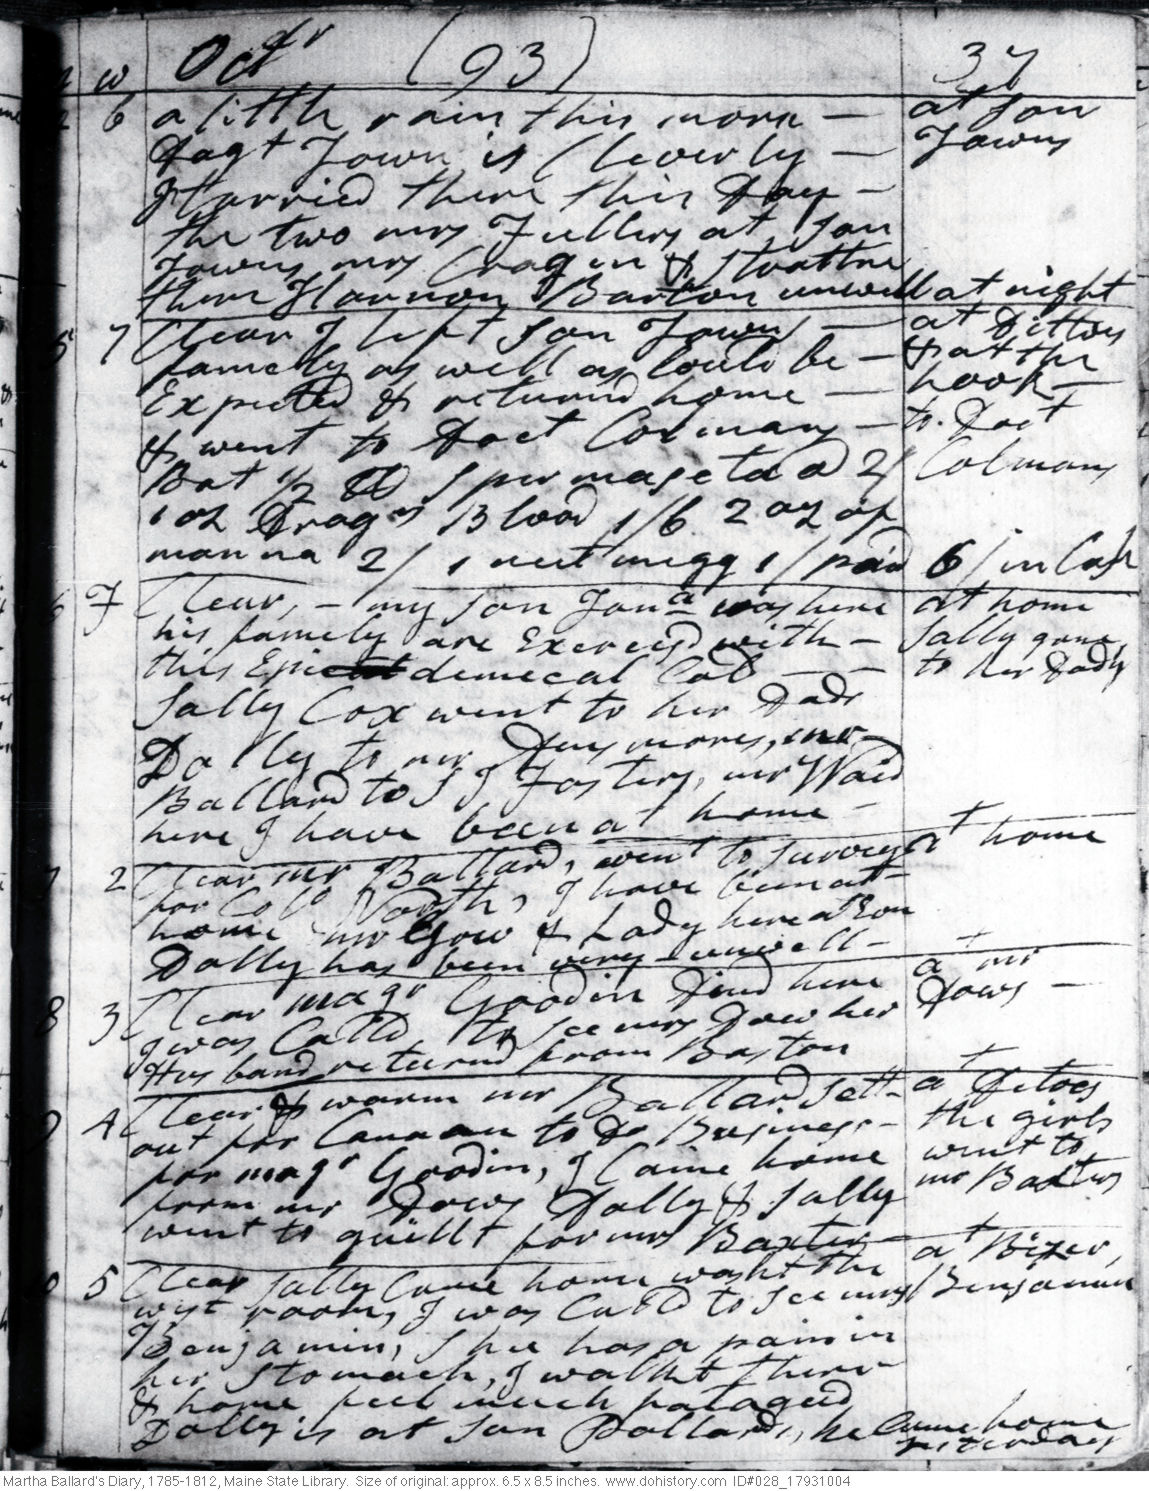 Octr (93) 37
m w
6 a little rain this morn — at son
Dagt Town is Cleverly — Towns
I tarried there this Day —
the two mrs Fullers at son
Towns mrs Cragin & Stratten
there Hannoh Barton unwell at night
5 7 Clear I left son Towns — at Dittoes
famelly as well as Could be — & at the
Expected & returnd home — hook —
& went to Doct Colmans — to Doct
Bot 1/2 lb Spermaseta @ 2/ Colmans
1 oz Dragns Blood 1/6 2 oz of
manna 2/ 1 nutmegg 1/ paid 6/ in Cash
6 F Clear, – my son Jona was here at home
his famely are Exercisd with — Sally gone
this Epidemecal Cold — — to her Dads
Sally Cox went to her Dads
Dolly to mr Densmores, mr
Ballard to S J Fosters, mr Waid
here I have been at home —
7 2 Clear mr Ballard, went to survey at home
for Colo North, I have been at
home mr Gow & Lady here at Evn
Dolly has been very unwell —
8 3 Clear magr Goodin Dind here at mr
I was Calld to see mrs Dow her Dows —
Husband returnd from Boston
9 4 Clear & warm mr Ballard sett at Ditoes
out for Cannan to Do Business — the girls
for magr Goodin, I Came home went to
from mr Dows Dolly & Sally mr Baxters
went to quillt for mrs Baxter —
0 5 Clear Sally Came home washt the at Bizer,
wist room, I was Calld to see mrs Benjamin
Benjamin, She has a pain in
her Stomach, I walkt there
& home feel much fatagud
Dolly is at son Pollards, he Came home
yesterday